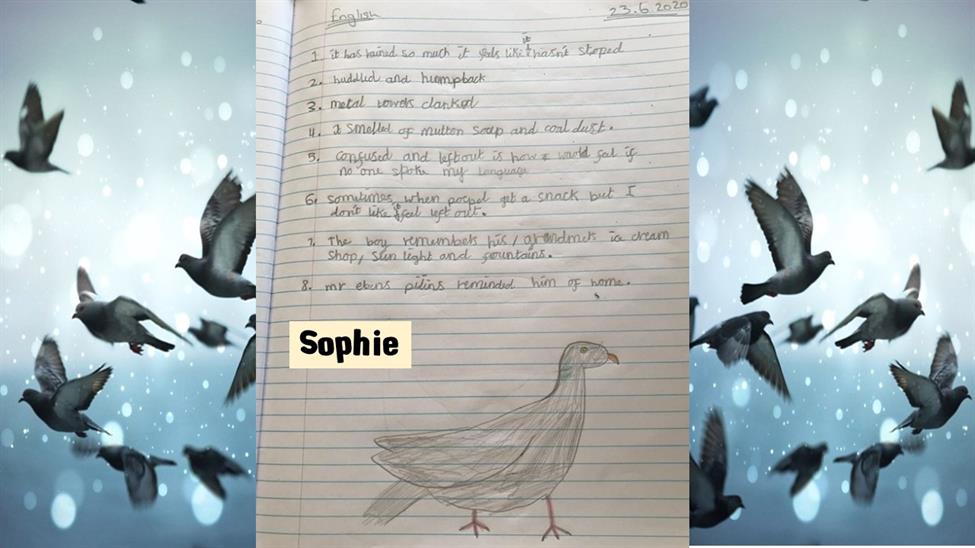 English
23.6.2020
1. it has rained so much it feels like it hasn't stoped
2. huddled and humpback
3. metal towels clanked
4. it smelled of mutton soap and coal dust.
5. confused and leftout is how I would feel if
no one spoke my language
6. sometimes when people get a snack but I
don't like it feel left out.
7. The boy remembers his grandmets ice cream
shop, sun light and fountains.
8. mr ebens pilins reminded him of home.
Sophie